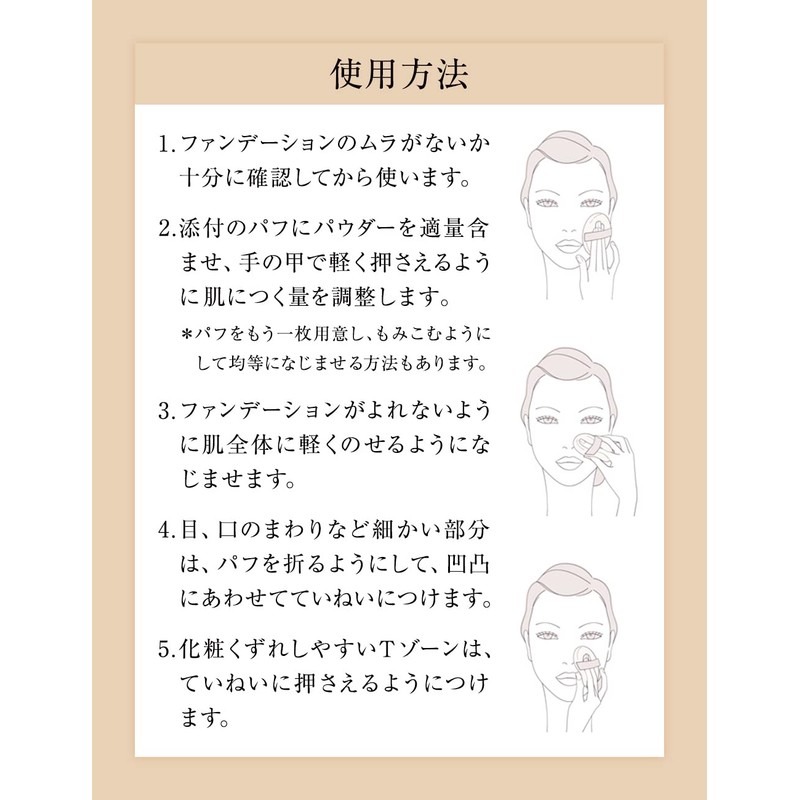 使用方法
1.ファンデーションのムラがないか
十分に確認してから使います。
2.添付のパフにパウダーを適量含
ませ、手の甲で軽く押さえるよう
に肌につく量を調整します。
＊パフをもう一枚用意し、もみこむように
して均等になじませる方法もあります。
3.ファンデーションがよれないよう
に肌全体に軽くのせるようにな
じませます。
4.目、口のまわりなど細かい部分
は、パフを折るようにして、凹凸
にあわせてていねいにつけます。
5.化粧くずれしやすいTゾーンは、
ていねいに押さえるようにつけ
ます。